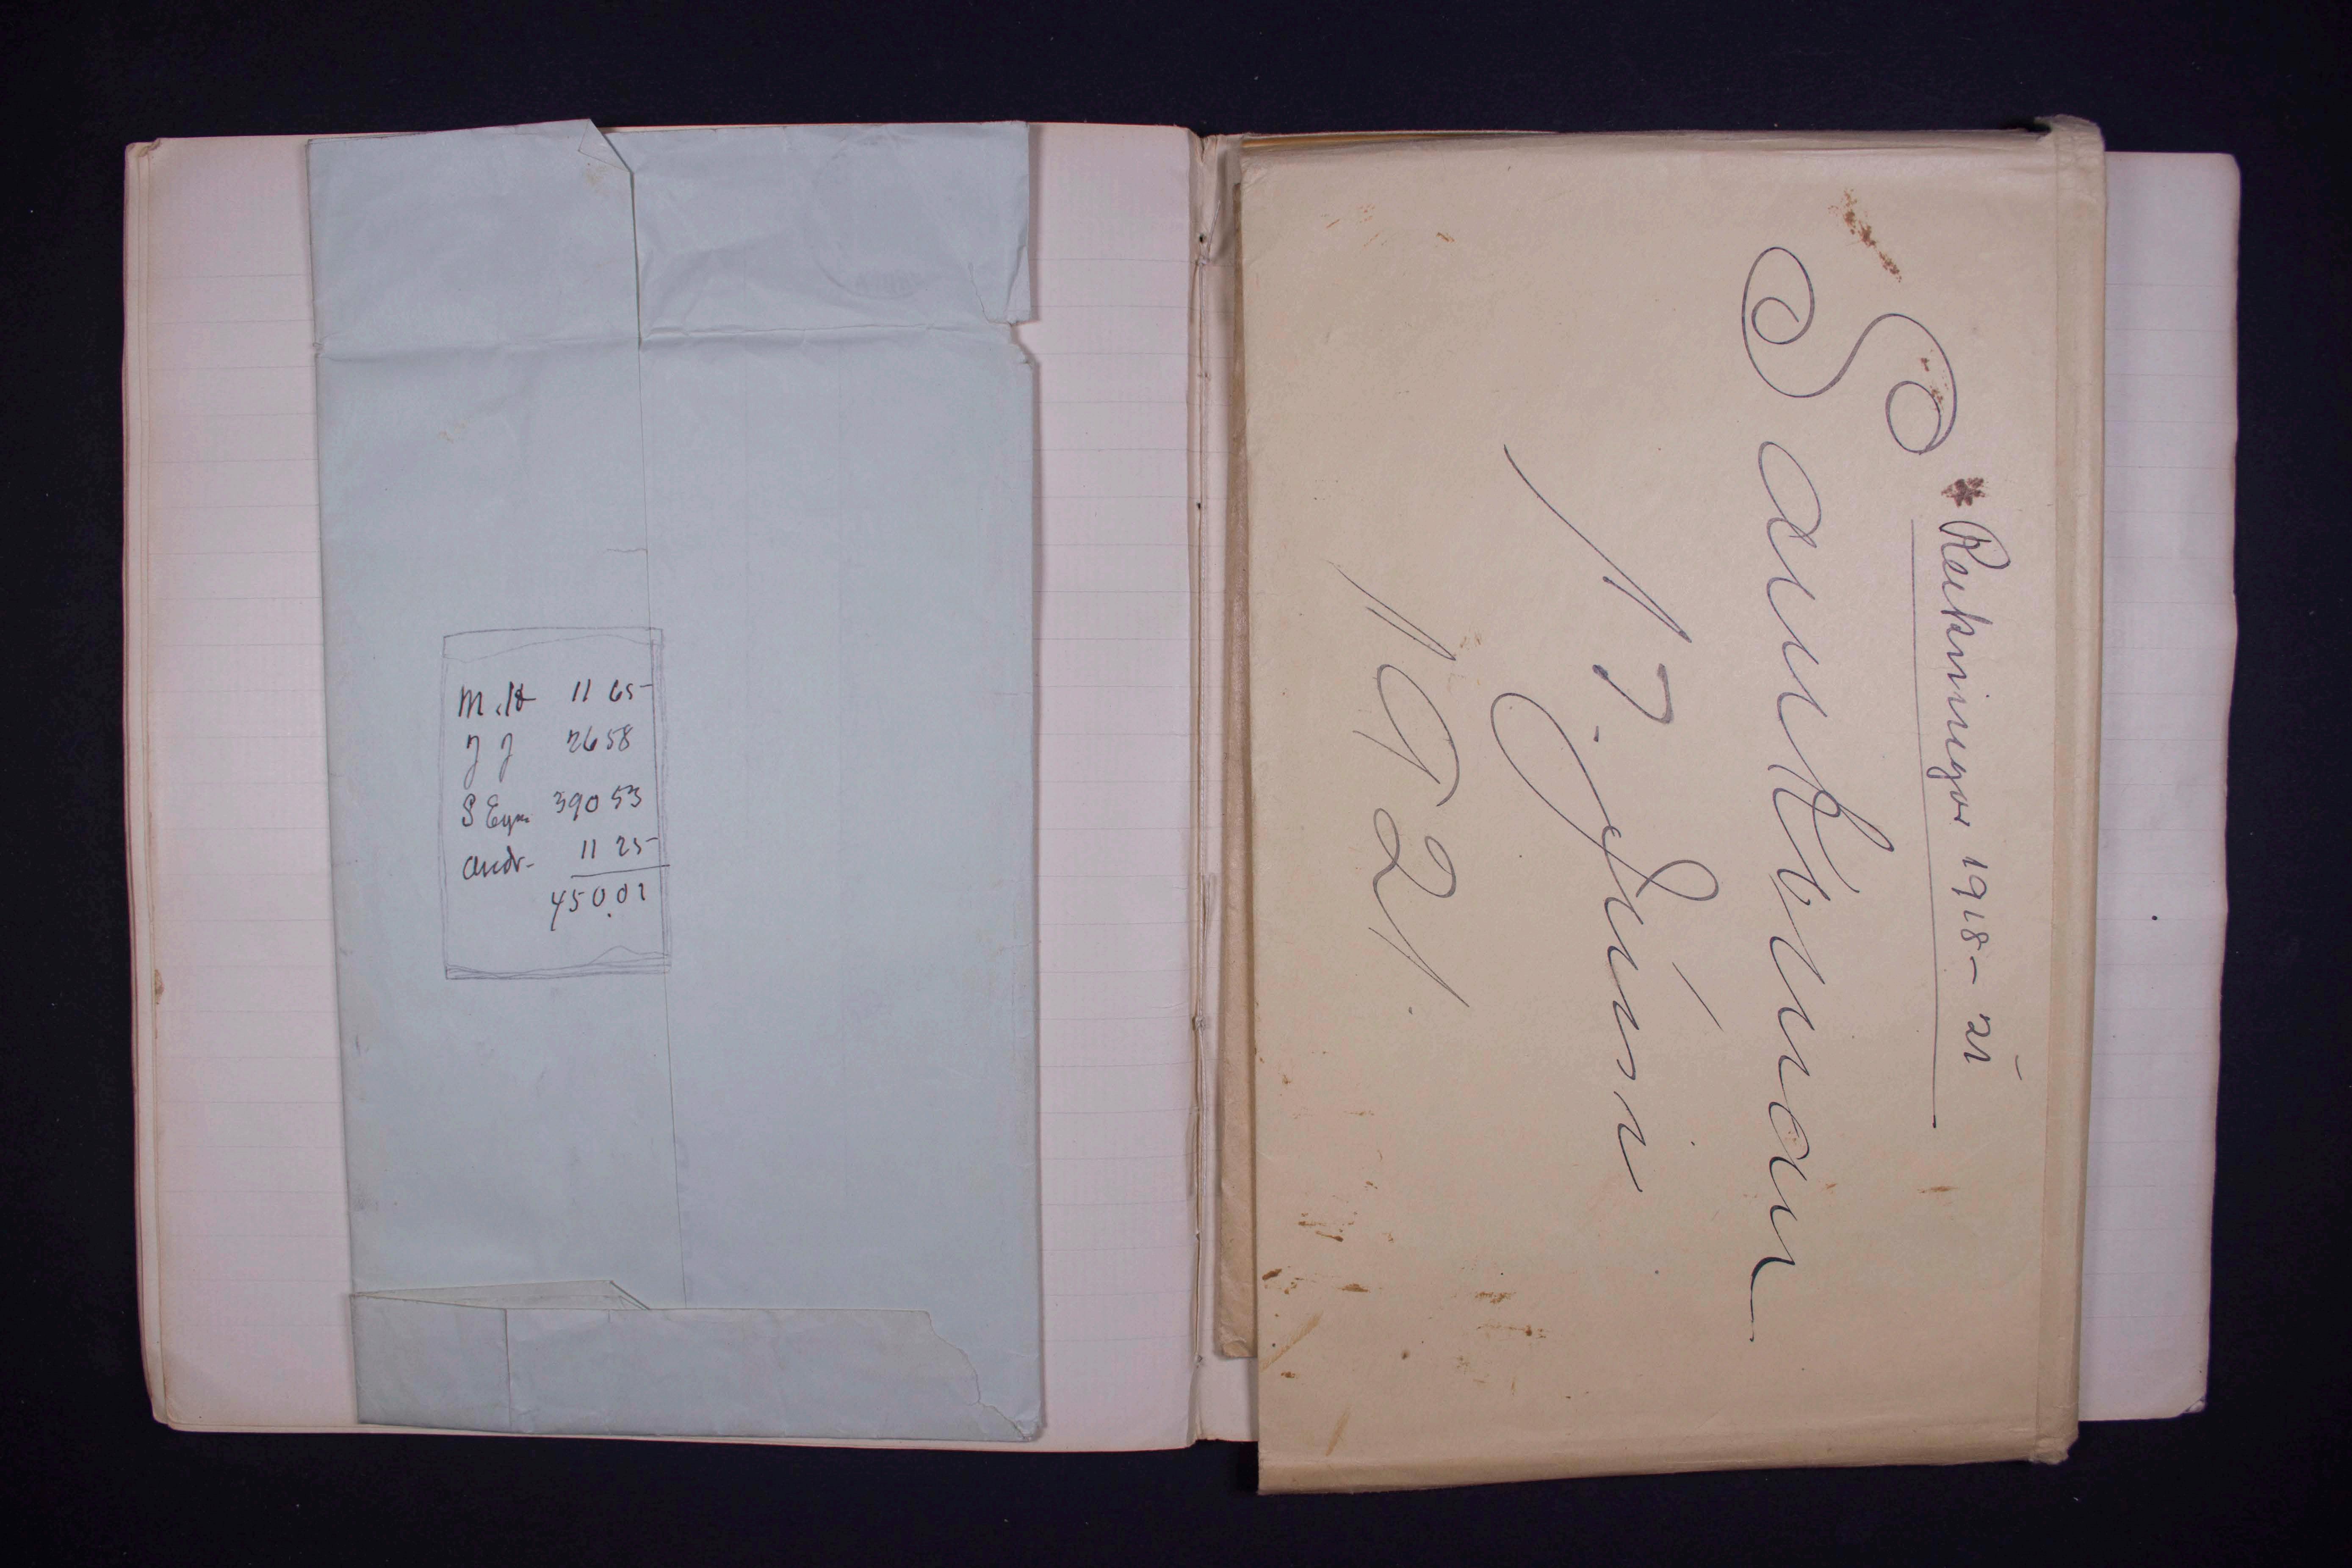 M. H 11 65
J J 2658
S Eym. 390 53
Andr. 11 25
450.01
Reikningar 1918 - 21
Samkoman
17. Júní
1921.